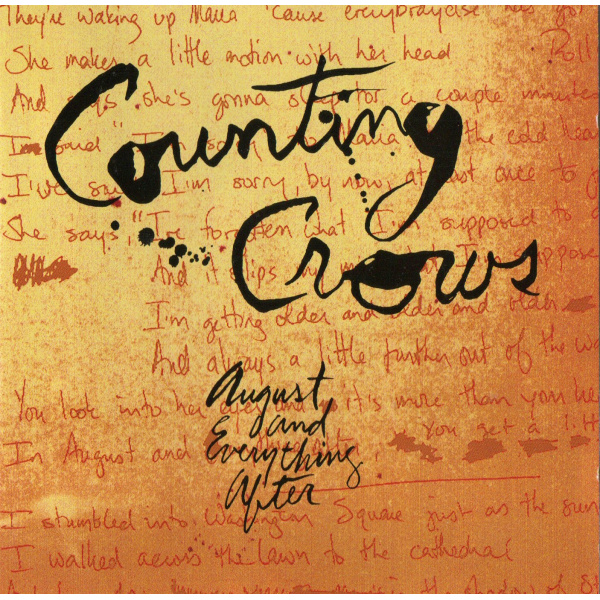 They're waking up Maria 'cause everybody else has got
She makes a little motion with her head Roll
And says she's gonna sleep for a couple minutes
I said I'm sorry to Maria the cold hea
I've sa I'm sorry, by now, at least once to
She says, "I've forgotten what I'm supposed to
And it slips my I'm suppose
I'm getting older and older and older
And always a little further out of the wa
You look into her eyes and it's more than your hea
In August and You get a litt
I stumbled into Washington Square just as the sun
I walked across the lawn to the cathedral
in the shadow of St
Counting
Crows
August
and
Everything
After